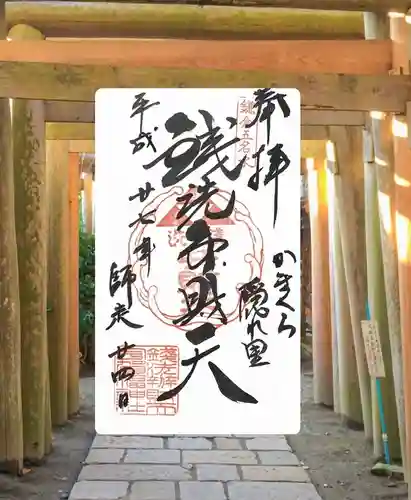 奉拝
かまくら
隠れ里
鎌倉五名水
銭洗弁財天
平成廿七年
師走廿四日